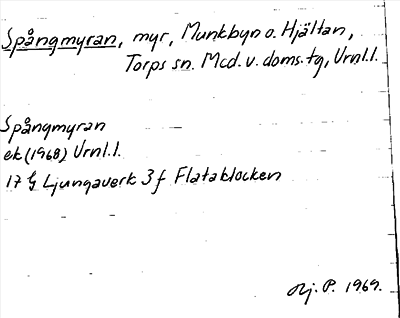 Spångmyran, myr, Munkbyn o. Hjältan,
Torps sn. Med. v. doms.tg, Vrnl.l.
Spångmyran
ek (1968) Vrnl.l.
17 G Ljungaverk 3 f Flataklocken
Hj. P. 1969.